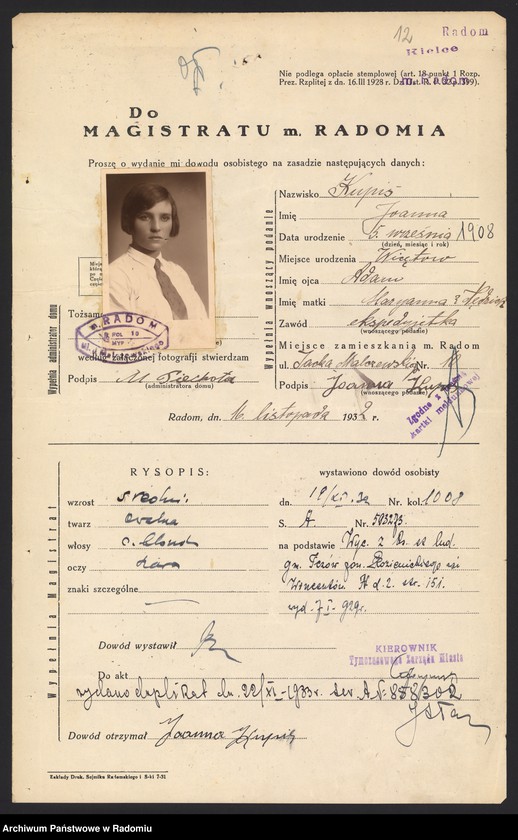 12 Radom
Kielce
m. Radom
Nie podlega opłacie stemplowej (art. 18 punkt 1 Rozp.
Prez. Rzplitej z dn. 16.III 1928 r.
Do
MAGISTRATU m. RADOMIA
Proszę o wydanie mi dowodu osobistego na zasadzie następujących danych:
Wypełnia wnoszący podanie
Nazwisko Kupis
Imię Joanna
Data urodzenie 5. września 1908
(dzień, miesiąc i rok)
Miejsce urodzenia
Imię ojca Adam
Imię matki Maryanna z
Zawód ekspedjetka
(wnoszącego podanie)
Miejsce zamieszkania m. Radom
ul. Jacka Malczewskiego Nr.
Podpis Joanna Kupis
(wnoszącego podanie)
Wypełnia administrator domu
RADOM
według załączonej fotografji stwierdzam
Podpis M. Piechota
(administratora domu)
Radom, dn. 16. listopada 1932 r.
Zgodne z
kartki meldunkowej
Wypełnia Magistrat
RYSOPIS:
wzrost średni.
twarz owalna
włosy c. blond
oczy
znaki szczególne —
wystawiono dowód osobisty
dn. Nr. kol. 1008
S. A. Nr.
na podstawie Wyc. z ks. ludn.
gm.
Wincentów. A d. 2. str. 151.
wyd. 7.I. 929r.
Dowód wystawił
KIEROWNIK
Tymczasowego Zarządu Miasta
Do akt
wydano duplikat dn. 22/XI-1933r. ser. A № 858302
Dowód otrzymał Joanna Kupis
Zakłady Druk. Sejmiku Radomskiego i S-ki 7-31
Archiwum Państwowe w Radomiu